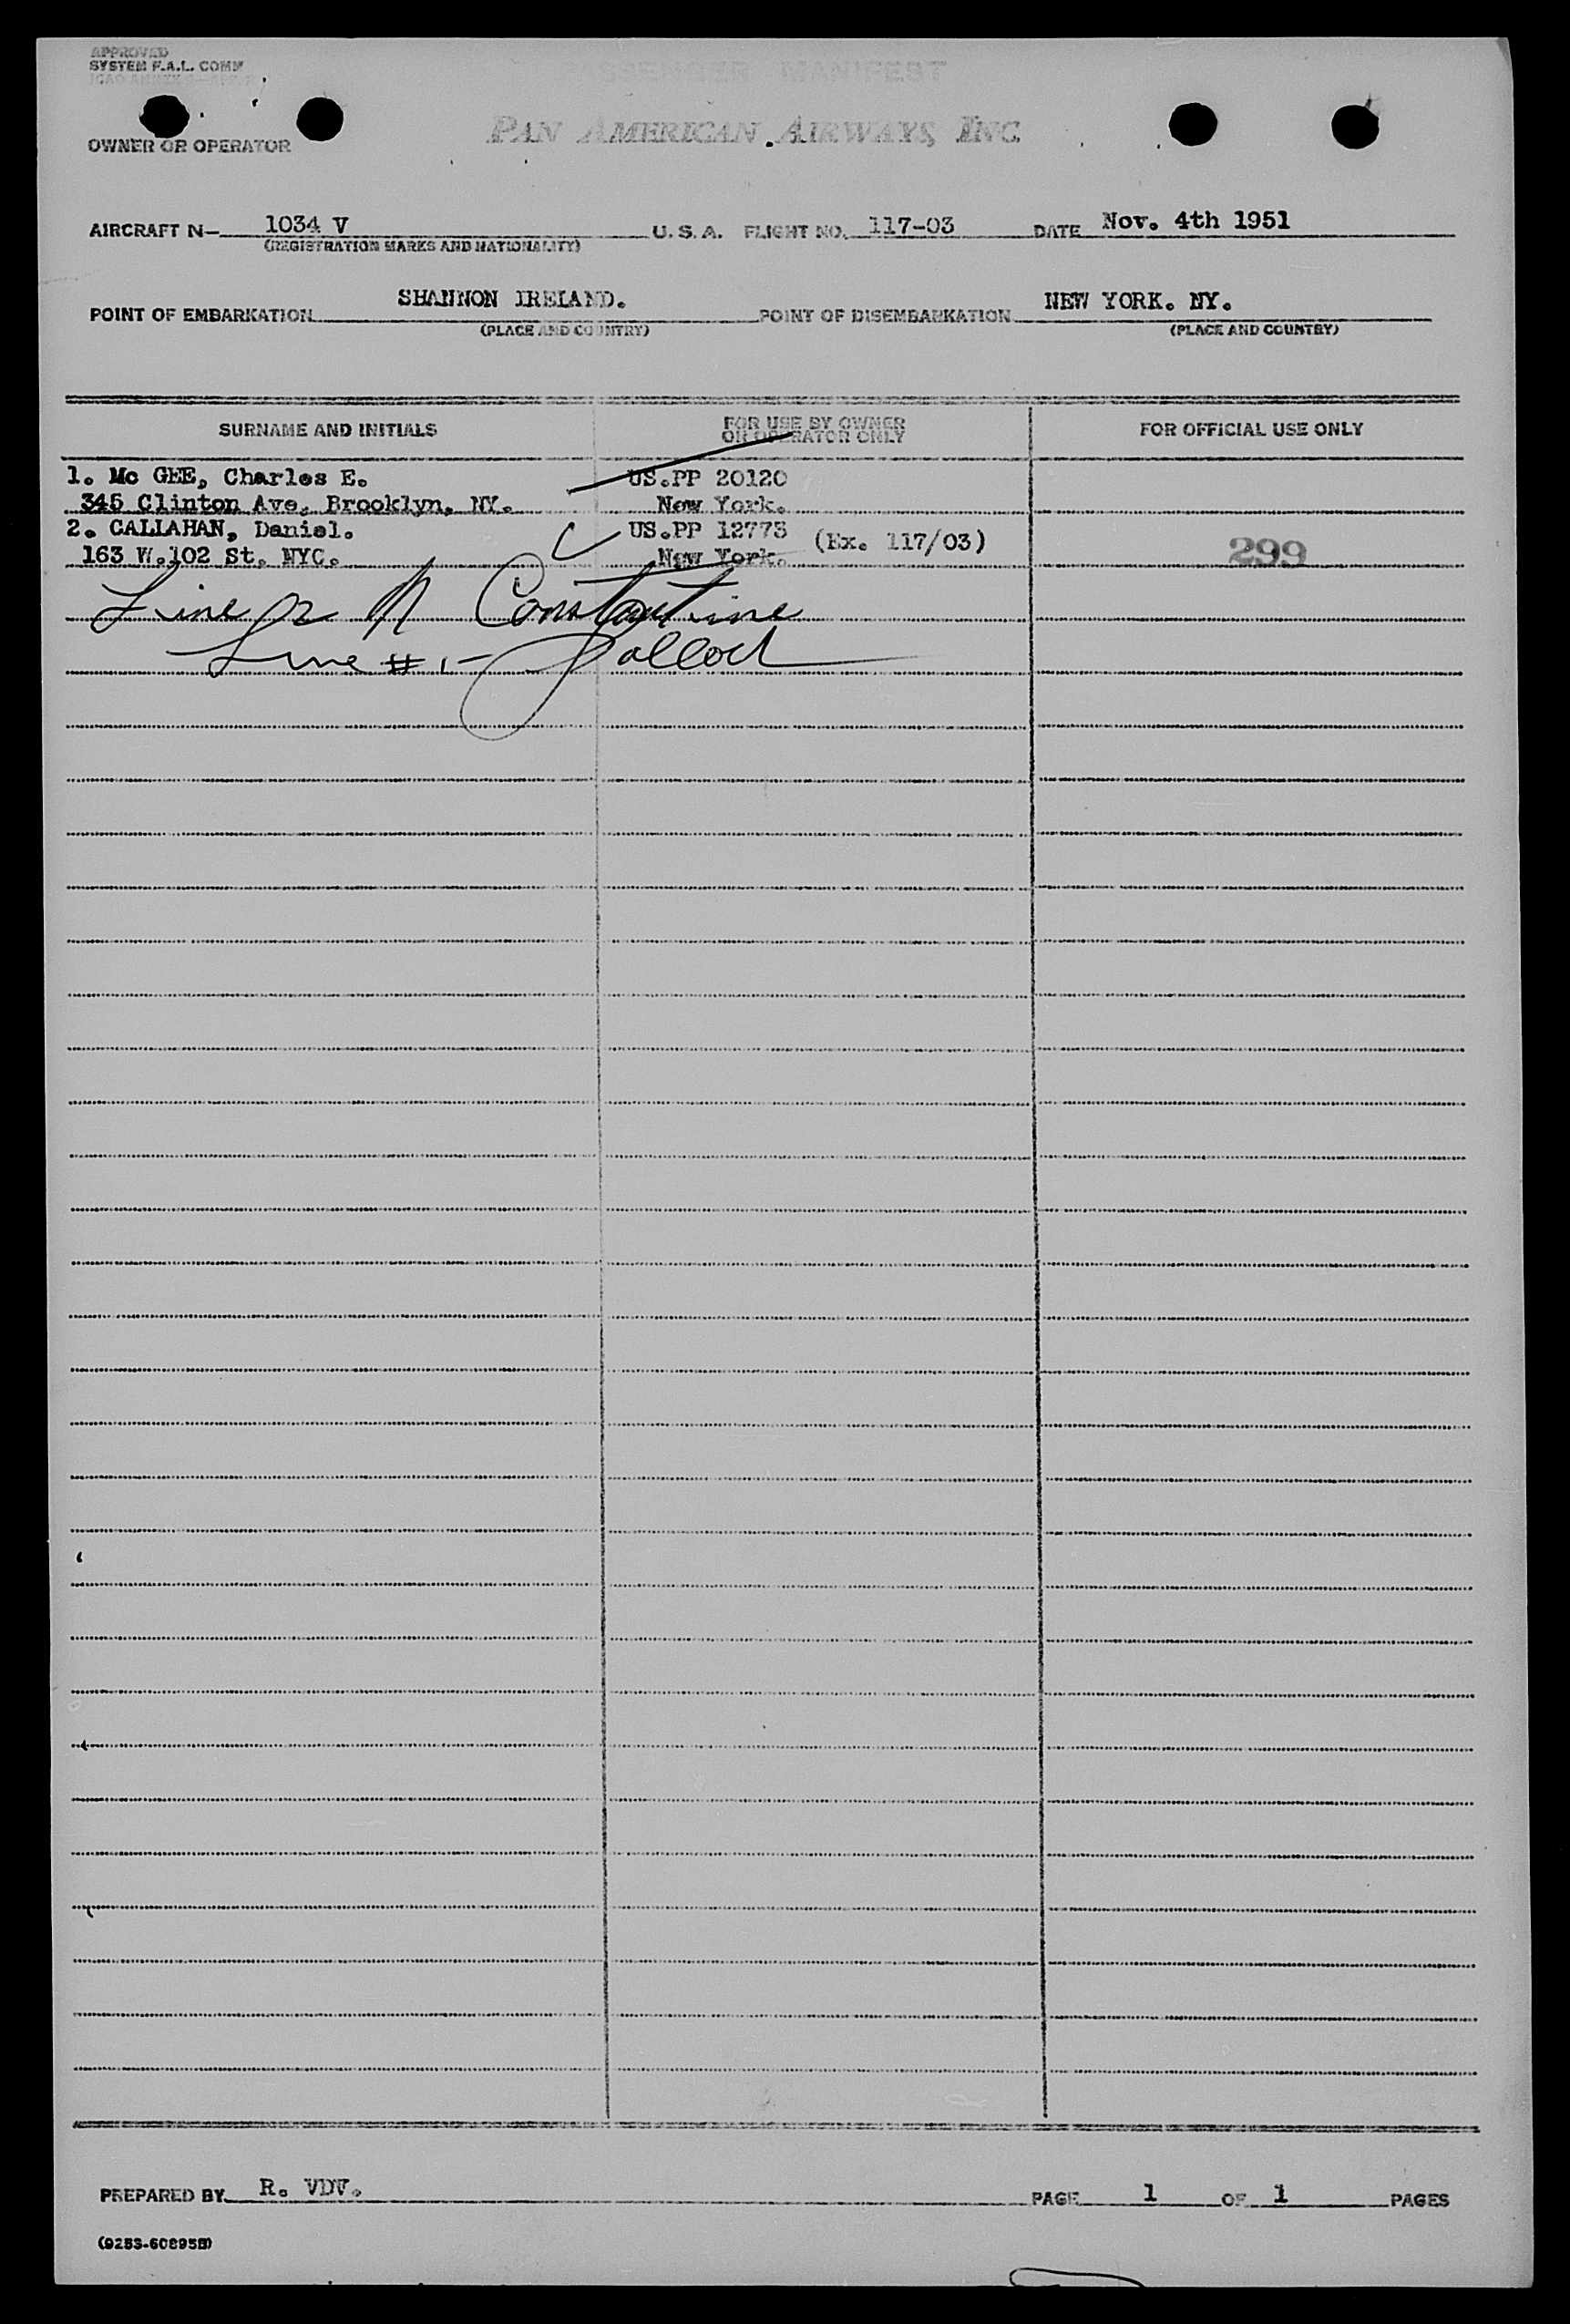 APPROVED
SYSTEM F.A.L. COMM
PASSENGER MANIFEST
OWNER OR OPERATOR
PAN AMERICAN AIRWAYS, INC.
AIRCRAFT N- 1034 V U. S. A. FLIGHT NO. 117-03 DATE Nov. 4th 1951
(REGISTRATION MARKS AND NATIONALITY)
POINT OF EMBARKATION SHANNON IRELAND. POINT OF DISEMBARKATION NEW YORK. NY.
(PLACE AND COUNTRY) (PLACE AND COUNTRY)
SURNAME AND INITIALS FOR USE BY OWNER OR OPERATOR ONLY FOR OFFICIAL USE ONLY
1. Mc GEE, Charles E. US.PP 20120
345 Clinton Ave. Brooklyn, NY. New York.
2. CALLAHAN, Daniel. US.PP 12773 (Ex. 117/03)
163 W.102 St. NYC. New York. 299
Line 2 N Constantine
Line # 1-
PREPARED BY R. VDV. PAGE 1 OF 1 PAGES
(9253-60895B)